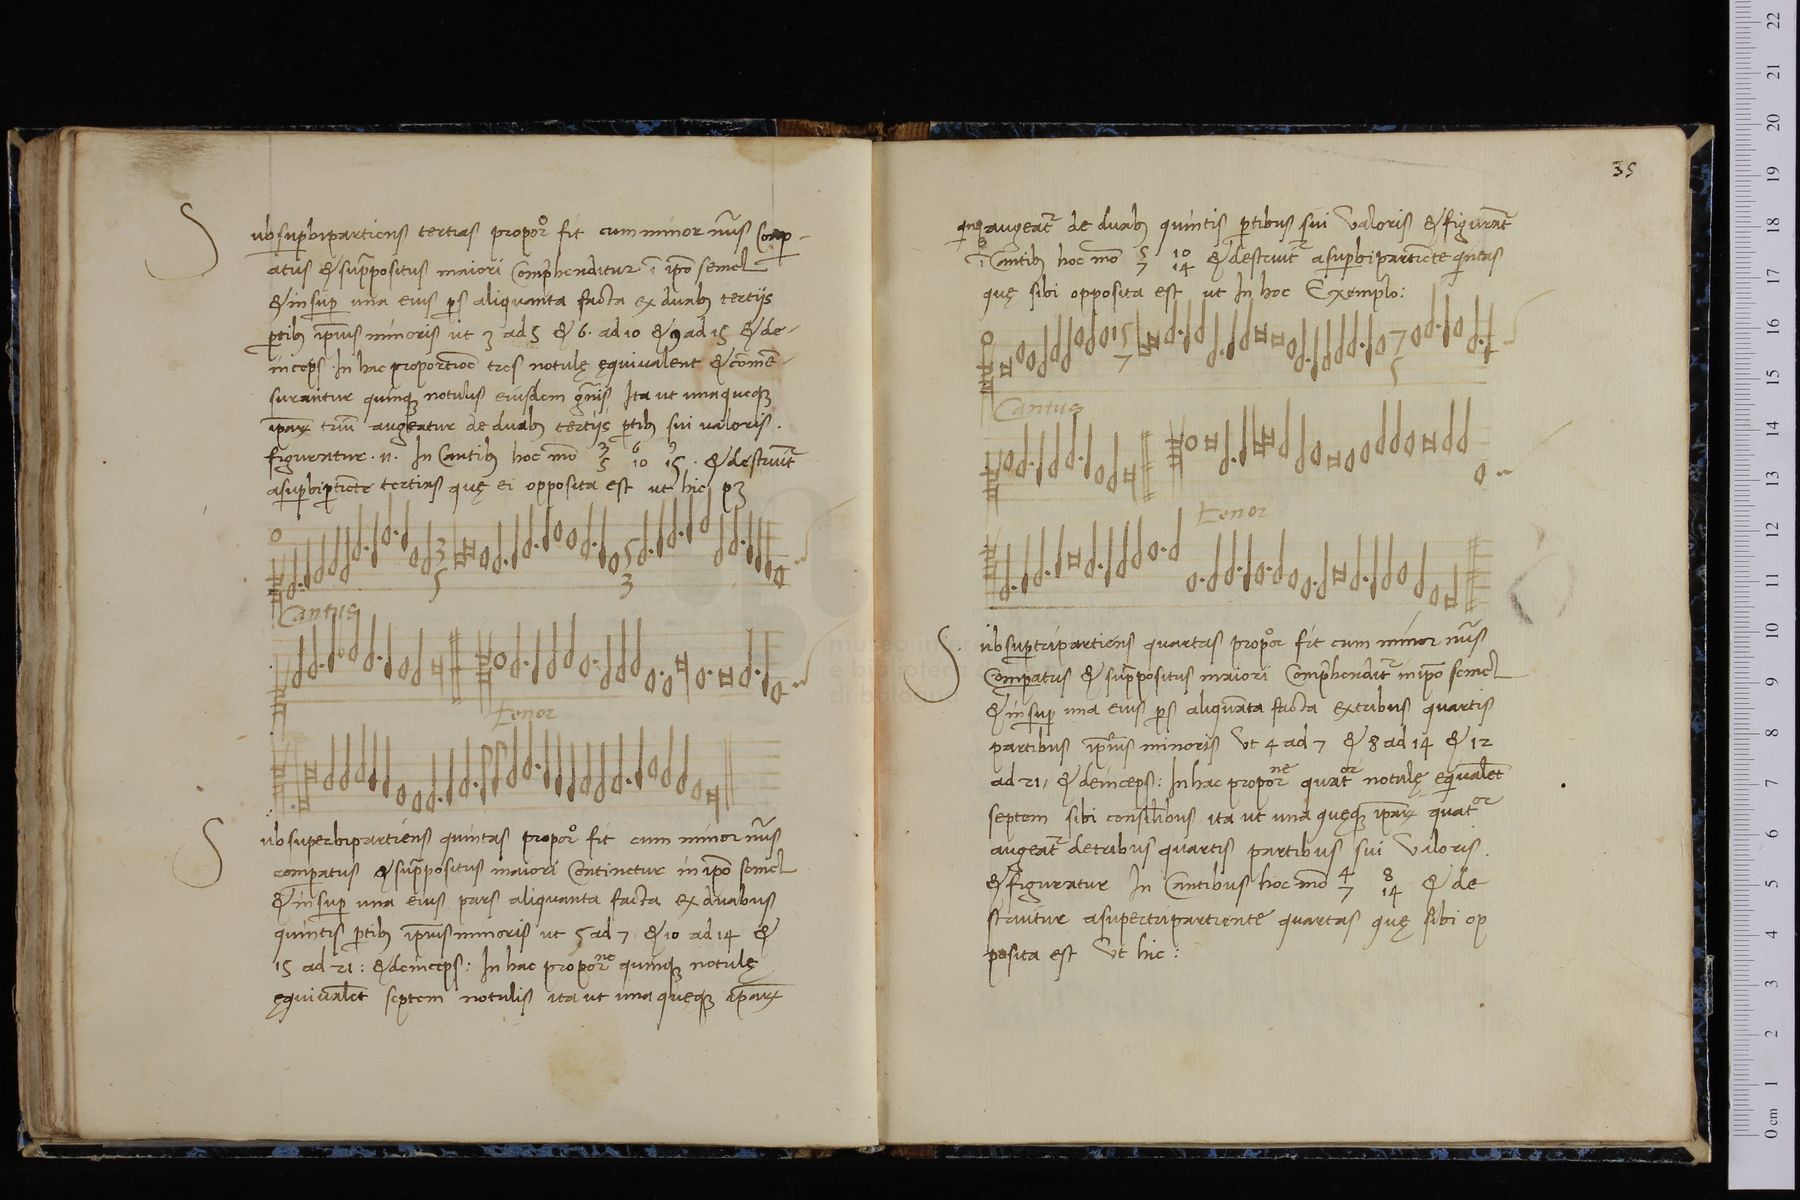 Subsupbipartiens tertias propor̊ fit cum minor nūs Comp-
atus & supp̄ositus maiori Comp̄henditur ī ip̄o semel
& insup una eius ps aliquanta facta ex duab₉ tertijs
ptib₉ ip̄ius minoris ut 3 ad 5 & 6. ad 10 & 9 ad 15 & de-
inceps. In hac proportiōe tres notulę ęquivalent & cōmē-
surantur quinqȝ notulis eiusdem gn̄is Ita ut unaqueqȝ
ip̄arꝝ triū augeatur de duab₉ tertijs ptib₉ sui valoris.
figurantur .n. In Cantib₉ hoc mō 3/5 6/10 9/15. & destruīt̄
a supbiptiēte tertias quę ei opposita est ut hic pȝ
3
5
5
3
Cantus
Tenor
Subsuperbipartiens quintas propor̊ fit cum minor nūs
compatus & supp̄ositus maiori Continetur in ip̄o semel
& insup una eius pars aliquanta facta ex duabus
quintis ptib₉ ip̄ius minoris ut 5 ad 7 & 10 ad 14 &
15 ad 21: & deinceps: In hac propor̄ne quinqȝ notulę
ęquivalēt septem notulis ita ut una quęqȝ ip̄arꝝ
35
quinqȝ augeat̄ de duab₉ quintis ptibus sui Valoris & figurat̄
ī Cantib₉ hoc mō 5/7 10/14 & destruit̄ a supbipartiēte qintas
quę sibi opposita est ut In hoc Exemplo:
5
7
7
5
Cantus
Tenor
Subsuptripartiens quartas propor̊ fit cum minor nūs
Compatus & supp̄ositus maiori Comp̄hendit̄ in ip̄o semel
& insup una eius ps aliquāta facta ex tribus quartis
partibus ip̄ius minoris Ut 4 ad 7 & 8 ad 14 & 12
ad 21, & deinceps: In hac propor̄ne quator notulę equivalēt
septem sibi consilībus ita ut una quęqȝ ip̄arꝝ quator
augeat̄ de tribus quartis partibus sui Valoris.
& figuratur In Cantibus hoc mō 4/7 8/14 & de
struitur a supertripartiente quartas quę sibi op
posita est Ut hic: